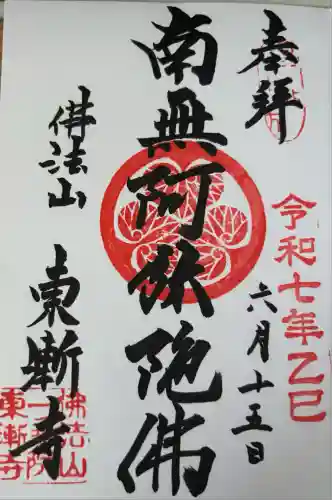 奉拝
令和七年乙巳
六月十五日
南無阿弥陀佛
佛法山
東漸寺
佛法山
一乗院
東漸寺